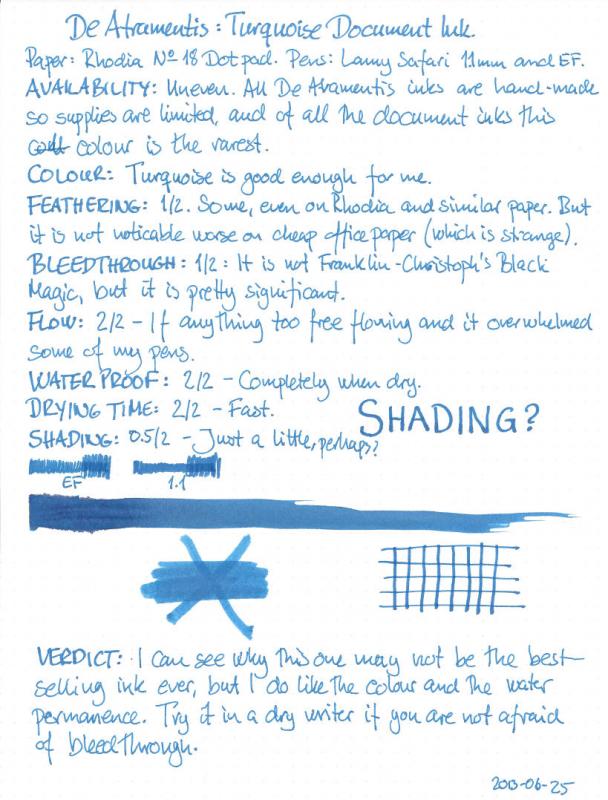 De Atramentis: Turquoise Document Ink.
Paper: Rhodia Nº 18 Dotpad. Pens: Lamy Safari 1.1mm and EF.
AVAILABILITY: Uneven. All De Atramentis inks are hand-made
so supplies are limited, and of all the document inks this
colour is the rarest.
COLOUR: Turquoise is good enough for me.
FEATHERING: 1/2. Some, even on Rhodia and similar paper. But
it is not noticable worse on cheap office paper (which is strange).
BLEEDTHROUGH: 1/2: It is not Franklin-Christoph's Black
Magic, but it is pretty significant.
FLOW: 2/2 - If anything too free flowing and it overwhelmed
some of my pens.
WATERPROOF: 2/2 - Completely when dry.
DRYING TIME: 2/2 - Fast.
SHADING?
SHADING: 0.5/2 - Just a little, perhaps?
EF 1.1
VERDICT: I can see why this one may not be the best-
selling ink ever, but I do like the colour and the water
permanence. Try it in a dry writer if you are not afraid
of bleedthrough.
2013-06-25